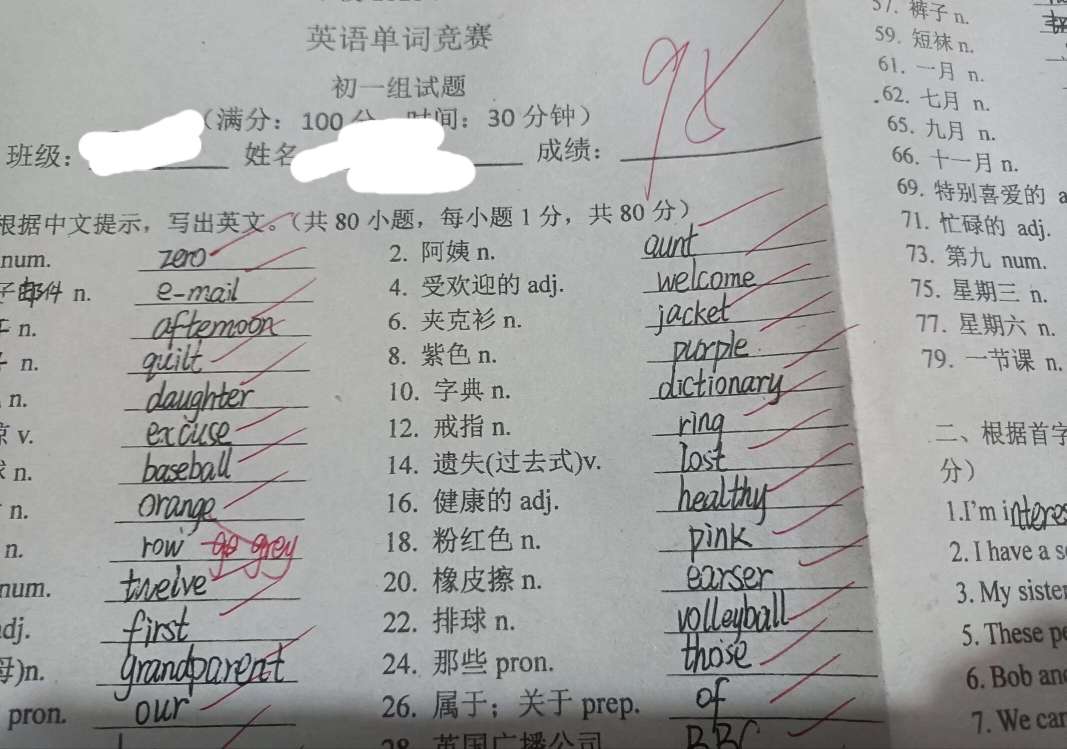 英语单词竞赛
初一组试题
（满分：100 时间：30 分钟）
班级： 姓名 成绩： 98
根据中文提示，写出英文。（共 80 小题，每小题 1 分，共 80 分）
num. zero 2. 阿姨 n. aunt
子邮件 n. e-mail 4. 受欢迎的 adj. welcome
n. afternoon 6. 夹克衫 n. jacket
n. quilt 8. 紫色 n. purple
n. daughter 10. 字典 n. dictionary
v. excuse 12. 戒指 n. ring
n. baseball 14. 遗失(过去式)v. lost
n. orange 16. 健康的 adj. healthy
n. row grey 18. 粉红色 n. pink
num. twelve 20. 橡皮擦 n. earser
dj. first 22. 排球 n. volleyball
母)n. grandparent 24. 那些 pron. those
pron. our 26. 属于；关于 prep. of
28 英国广播公司 BBC
57. 裤子 n.
59. 短袜 n.
61. 一月 n.
62. 七月 n.
65. 九月 n.
66. 十一月 n.
69. 特别喜爱的 a
71. 忙碌的 adj.
73. 第九 num.
75. 星期三 n.
77. 星期六 n.
79. 一节课 n.
二、根据首字
分）
1.I'm interes
2. I have a s
3. My sister
5. These pe
6. Bob and
7. We can